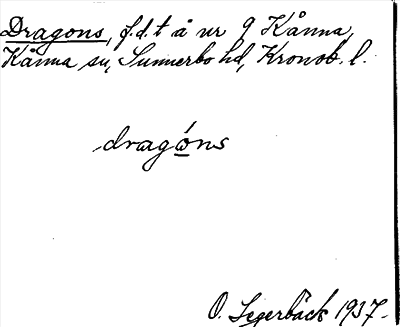 Dragons, f.d.t å nr 9 Kånna,
Kånna sn, Sunnerbo hd, Kronob. l.
dragó̲ns
O. Segerbäck 1937.